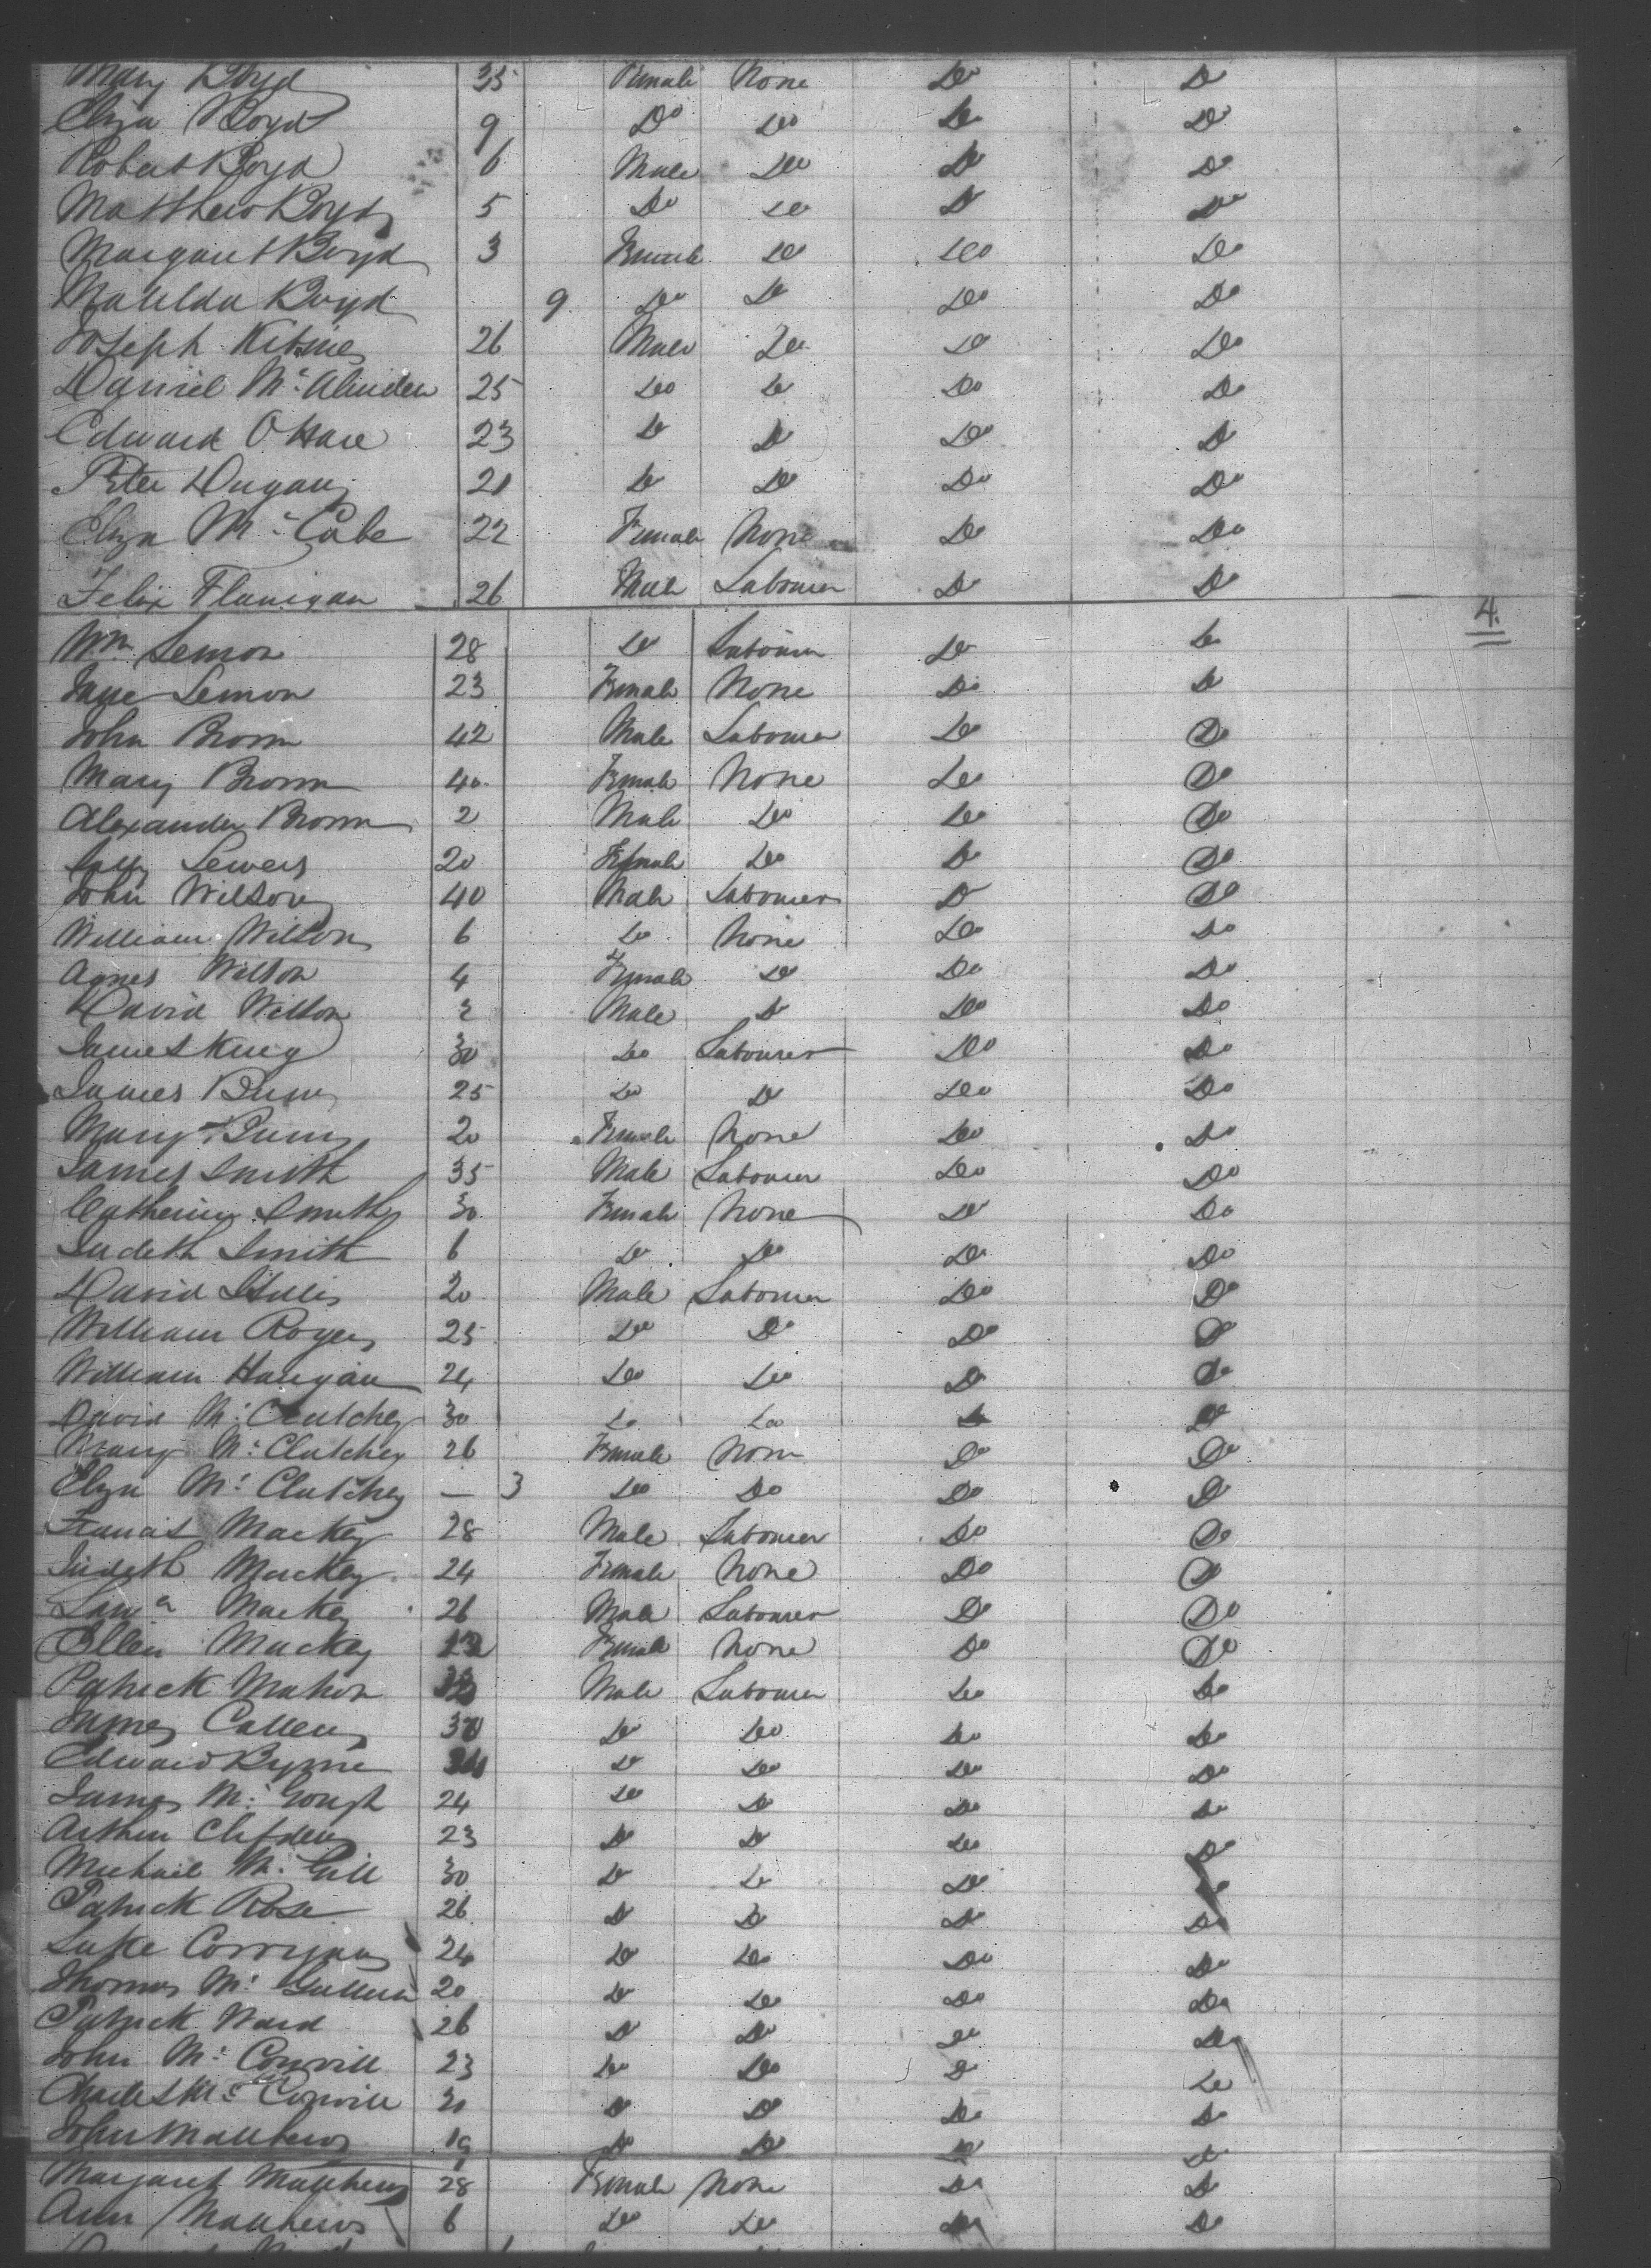 Mary Boyd 35 Female None Do Do
Eliza Boyd 9 Do Do Do Do
Robert Boyd 6 Male Do Do Do
Matthew Boyd 5 Do Do Do Do
Margaret Boyd 3 Female Do Do Do
Matilda Boyd 9 Do Do Do Do
Joseph 26 Male Do Do Do
Daniel 25 Do Do Do Do
Edward O'Hare 23 Do Do Do Do
Peter Dugan 21 Do Do Do Do
Eliza Mc Cabe 22 Female None Do Do
Felix Flanigan 26 Male Labourer Do Do
4.
Wm Lemon 28 Do Labourer Do Do
Jane Lemon 23 Female None Do Do
John Brown 42 Male Labourer Do Do
Mary Brown 40 Female None Do Do
Alexander Brown 2 Male Do Do Do
Sewers 20 Female Do Do Do
John Wilson 40 Male Labourer Do Do
William Wilson 6 Do None Do Do
Agnes Wilson 4 Female Do Do Do
David Wilson 2 Male Do Do Do
James King 30 Do Labourer Do Do
James 25 Do Do Do Do
Mary 20 Female None Do Do
James Smith 35 Male Labourer Do Do
Catherine Smith 30 Female None Do Do
Judeth Smith 6 Do Do Do Do
David 20 Male Labourer Do Do
William Rogers 25 Do Do Do Do
William Hanigan 24 Do Do Do Do
David Mc Clutchey 30 Do Do Do Do
Mary Mc Clutchey 26 Female None Do Do
Eliza Mc Clutchey — 3 Do Do Do Do
Francis Mackey 28 Male Labourer Do Do
Judeth Mackey 24 Female None Do Do
Mackey 26 Male Labourer Do Do
Ellen Mackey Female None Do Do
Patrick Mahon Male Labourer Do Do
James Callen 30 Do Do Do Do
Edward Byrne Do Do Do Do
James Mc Gough 24 Do Do Do Do
Arthur 23 Do Do Do Do
Michael Mc Gill 30 Do Do Do Do
Patrick Rose 26 Do Do Do Do
Luke Corrigan 24 Do Do Do Do
Thomas Mc 20 Do Do Do Do
Patrick Ward 26 Do Do Do Do
John Mc Convill 23 Do Do Do Do
Charles Mc Convill 20 Do Do Do Do
John Matthews 19 Do Do Do Do
Margaret Matthews 28 Female None Do Do
Ann Matthews 6 Do Do Do Do